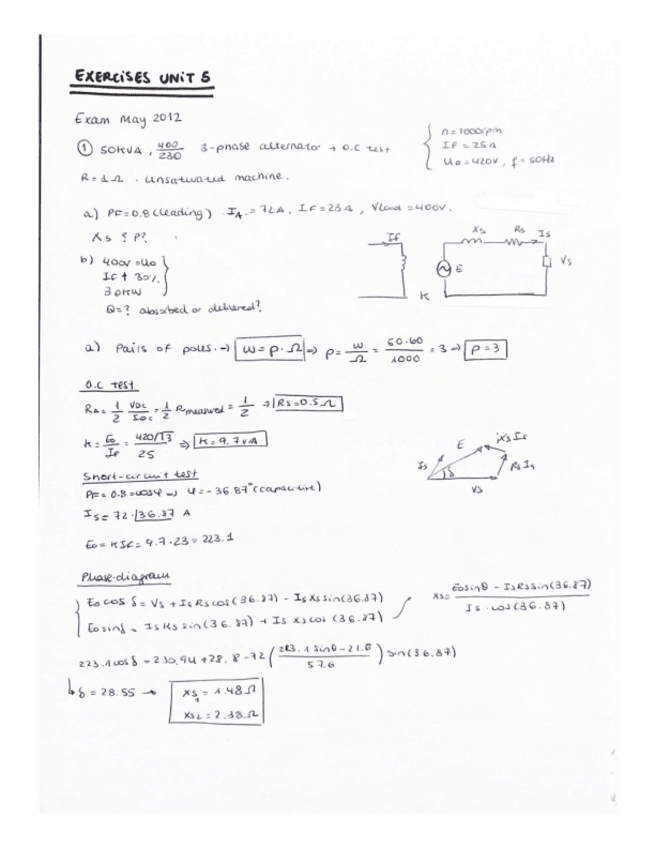 EXERCISES UNIT 5
Exam May 2012
① 50KVA, 400/230 3-phase alternator → O.C test
{ n=1000rpm
IF = 25A
U0=420V, f=50Hz
R=1Ω . Unsaturated machine.
a) PF=0.8 (leading) IA=72A. IF=23A, Vload=400V.
Xs ? P?
b) 400V=U0
IF ↑ 30%
30KW
Q=? absorbed or delivered?
If
K
Xs Rs Is
E
Vs
a) Pairs of poles → w = p·Ω ⇒ p = w/Ω = 50·60/1000 = 3 → p=3
O.C test
RA = 1/2 VDC/IDC = 1/2 Rmeasured = 1/2 → Rs=0.5Ω
K = E0/IF = 420/√3/25 ⇒ K=9.7V/A
Short-circuit test
PF= 0.8=cosφ → φ=-36.87° (capacitive)
Is=72 ∠36.87 A
E0 = K IF = 9.7·23 = 223.1
Is E jXs Is
δ Rs Is
Vs
Phase-diagram
E0 cos δ = Vs + Is Rs cos(36.87) - Is Xs sin(36.87)
E0 sin δ = Is Rs sin(36.87) + Is Xs cos(36.87)
Xs = E0 sinθ - Is Rs sin(36.87) / Is · cos(36.87)
223.1 cos δ = 230.94 + 28.8 - 72 (223.1 sinθ - 21.6 / 57.6) sin(36.87)
↳ δ = 28.55 → Xs1 = 1.48Ω
Xs2 = 2.38Ω